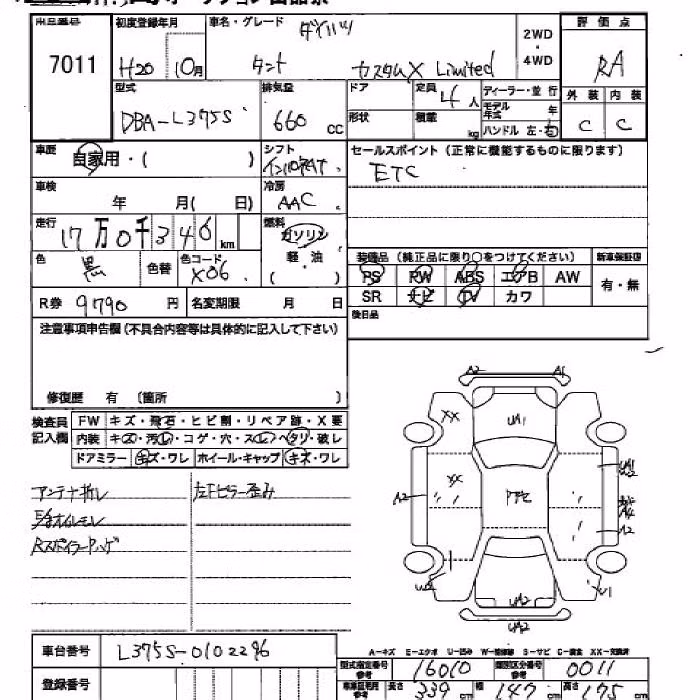 出品番号 初度登録年月 車名・グレード ダイハツ 2WD・4WD 評価点
7011 H20 10月 タント カスタムX Limited RA
型式 排気量 ドア 定員 4人 ディーラー・並行 外装 内装
DBA-L375S 660cc 形状 積載 kg モデル年式 年 ハンドル 左・右 C C
車歴 自家用・( ) シフト インパネAT セールスポイント (正常に機能するものに限ります)
ETC
車検 年 月( 日) 冷房 AAC
走行 17万0千346km 燃料 ガソリン
軽・油
( )
色 黒 色替 色コード X06 装備品 (純正品に限り○をつけてください) 新車保証書
PS PW ABS エアB AW 有・無
R券 9790円 名変期限 月 日 SR ナビ TV カワ
後日品
注意事項申告欄(不具合内容等は具体的に記入して下さい)
修復歴 有 (箇所 )
検査員記入欄 FW キズ・飛石・ヒビ割・リペア跡・X要
内装 キズ・汚レ・コゲ・穴・スレ・ヘタリ・破レ
ドアミラー キズ・ワレ ホイール・キャップ キズ・ワレ
アンテナ折レ 左Fピラー歪み
Rスポイラーハゲ
A2 A1
XX UA1
XX
A2
A2
UA2 U1
UA2
A-キズ E-エクボ U-凹み W-補修跡 S-サビ C-腐食 XX-交換済
車台番号 L375S-0102296
型式指定番号 参考 16010 類別区分番号 参考 0011
登録番号 長さ 339cm 幅 147cm 高さ 175cm